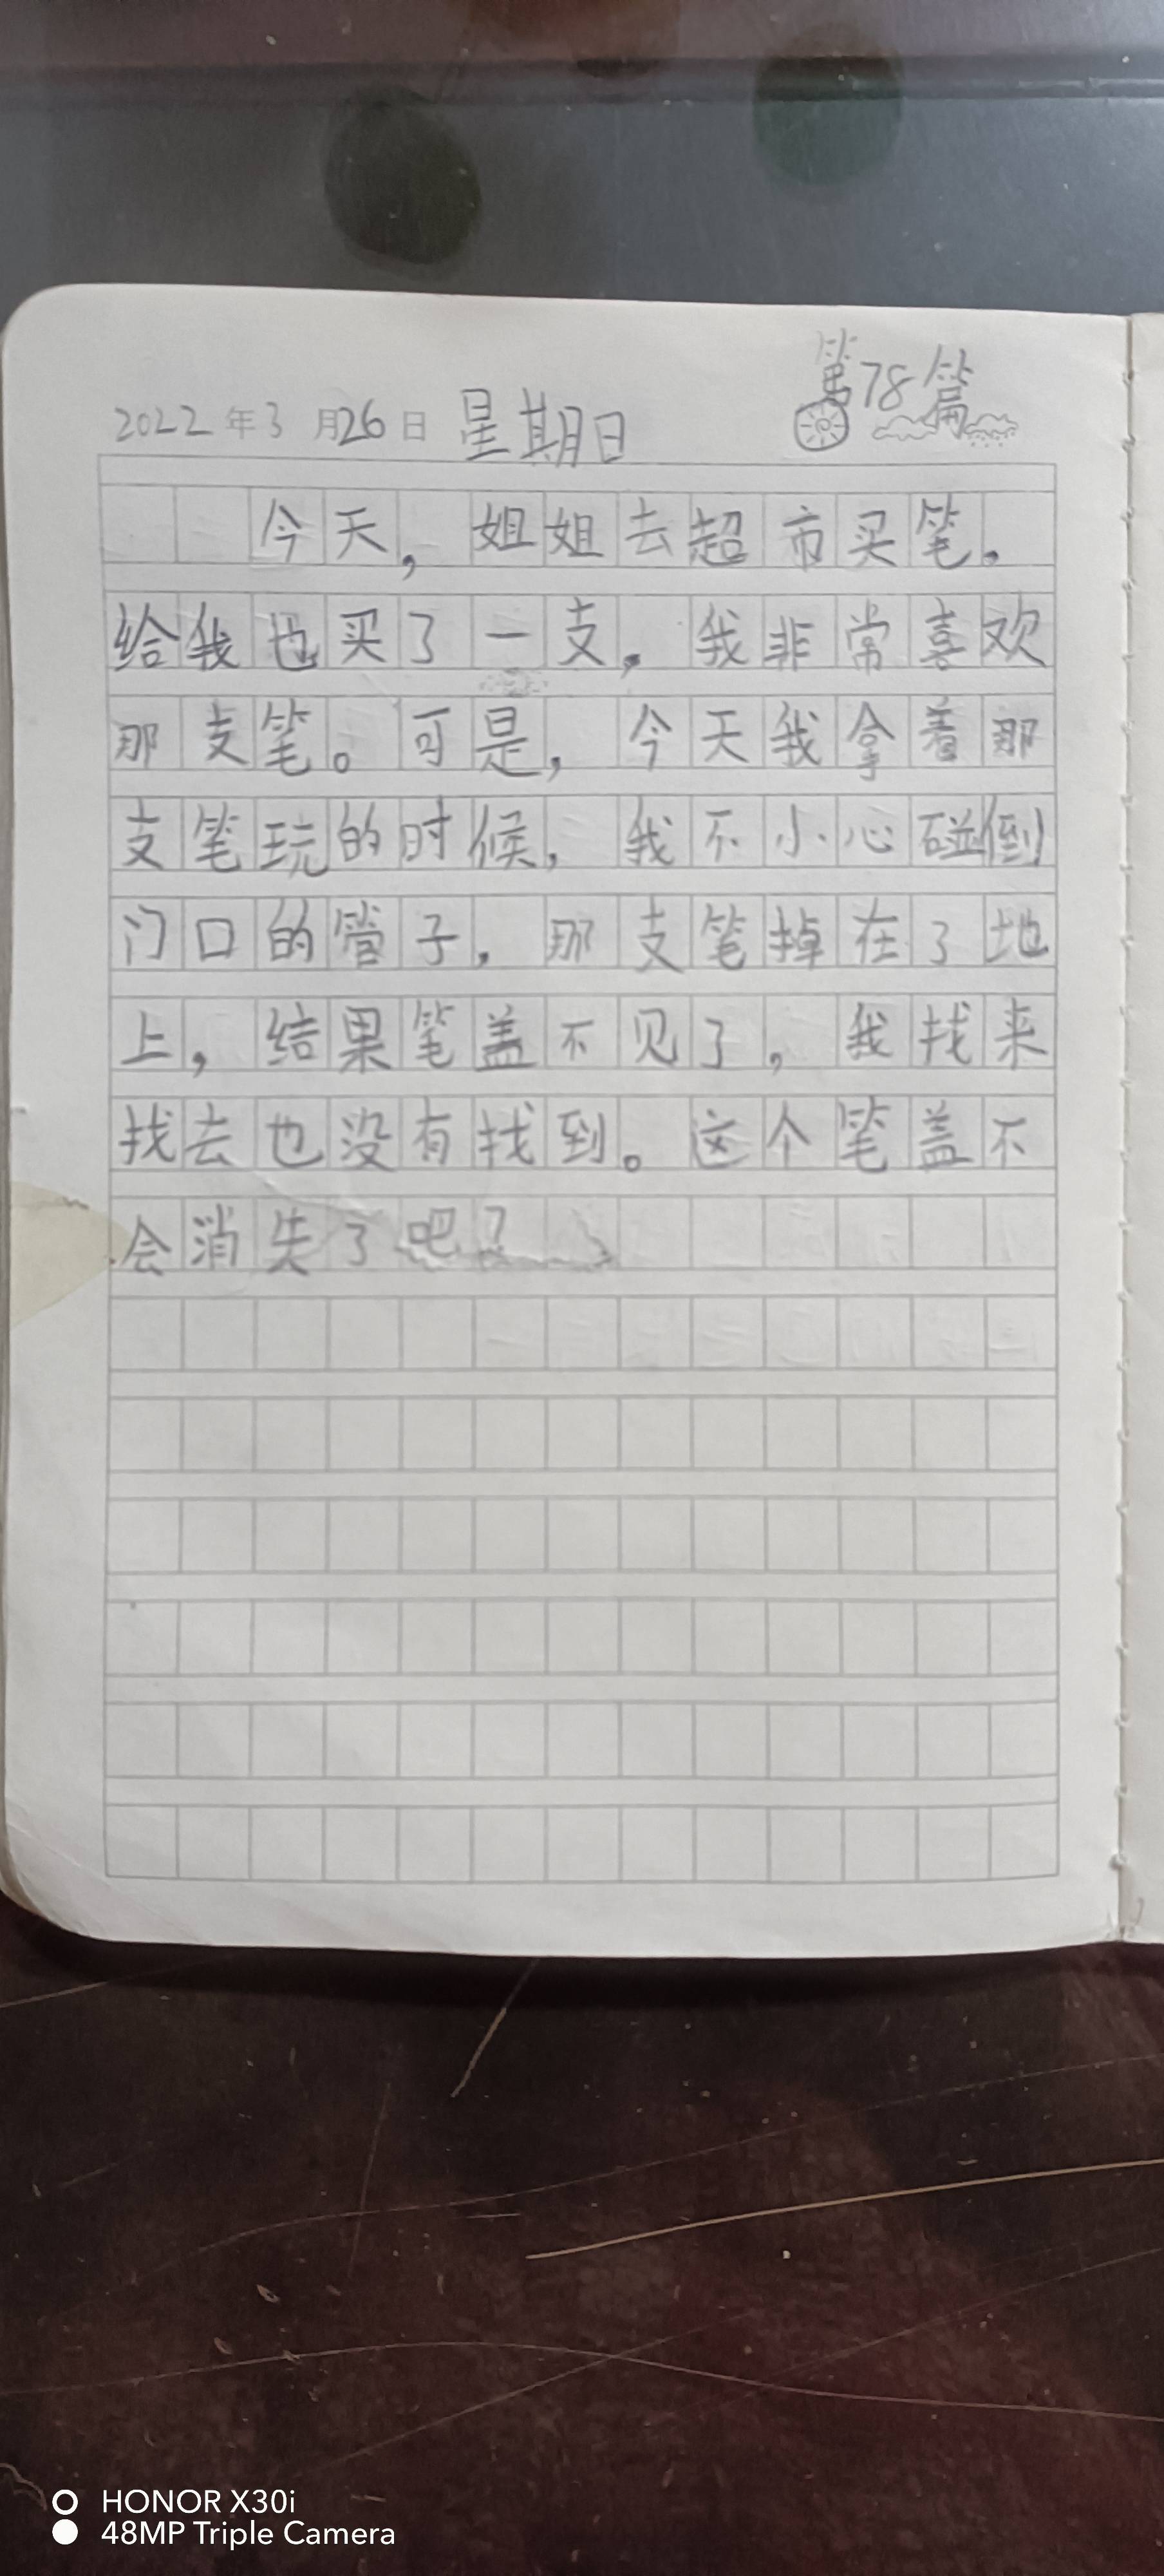 第78篇
2022年3月26日 星期日
今天，姐姐去超市买笔。
给我也买了一支，我非常喜欢
那支笔。可是，今天我拿着那
支笔玩的时候，我不小心碰倒
门口的管子，那支笔掉在了地
上，结果笔盖不见了，我找来
找去也没有找到。这个笔盖不
会消失了吧？
HONOR X30i
48MP Triple Camera